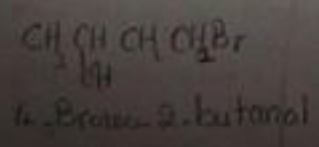 CH₃ CH CH CH₂Br
OH
1-Bromo-2-butanol